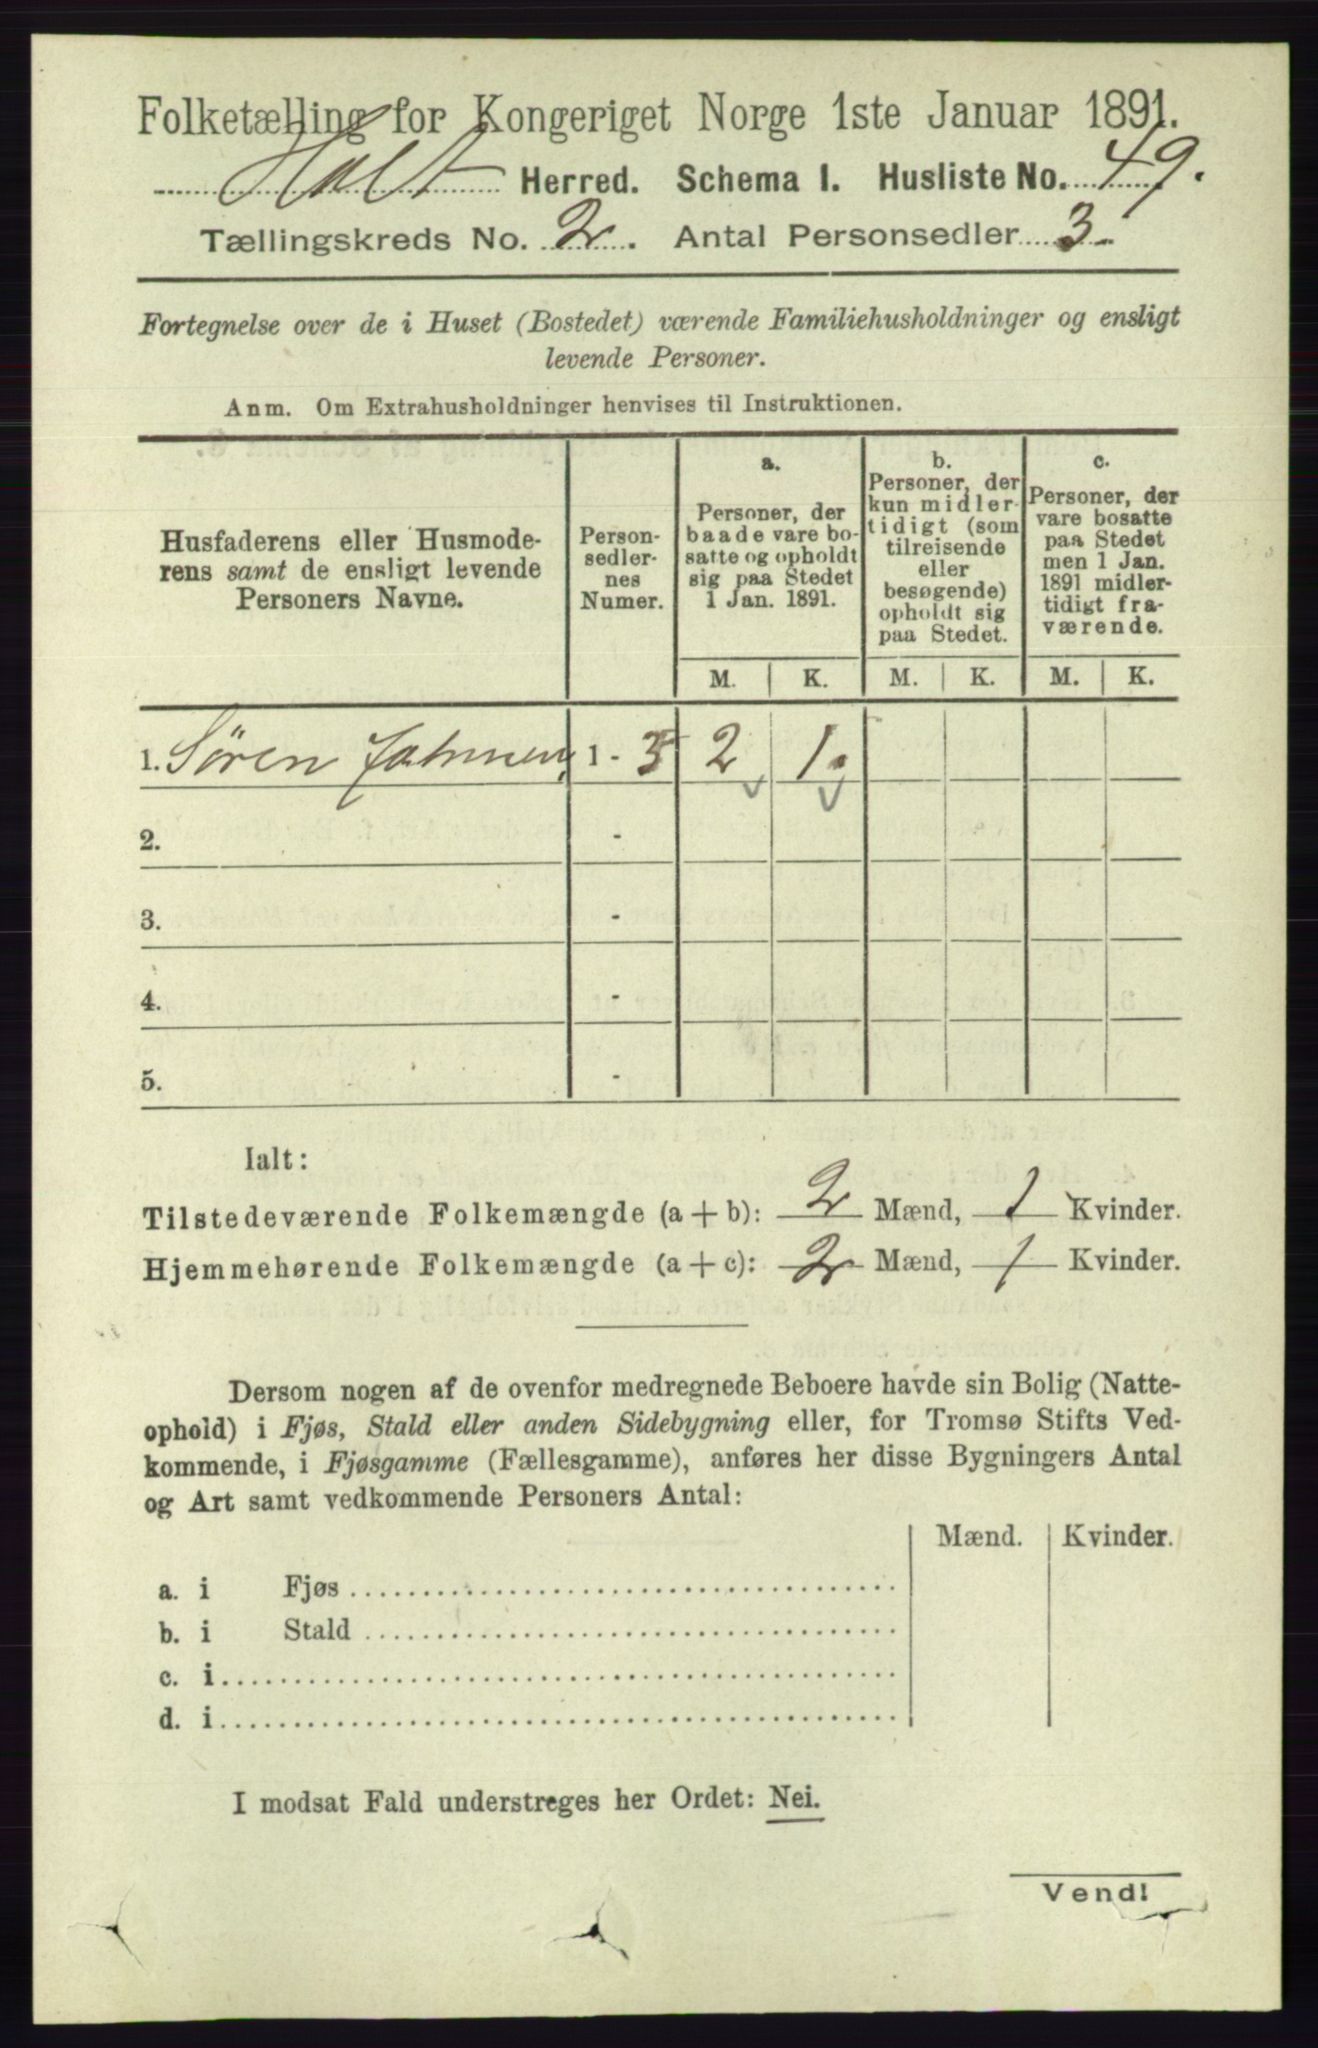 Folketælling for Kongeriget Norge 1ste Januar 1891.
Holt Herred. Schema I. Husliste No. 49.
Tællingskreds No. 2. Antal Personsedler 3.
Fortegnelse over de i Huset (Bostedet) værende Familiehusholdninger og ensligt
levende Personer.
Anm. Om Extrahusholdninger henvises til Instruktionen.
Husfaderens eller Husmode-
rens samt de ensligt levende
Personers Navne.
Person-
sedler-
nes
Numer.
a.
Personer, der
baade vare bo-
satte og opholdt
sig paa Stedet
1 Jan. 1891.
b.
Personer, der
kun midler-
tidigt (som
tilreisende
eller
besøgende)
opholdt sig
paa Stedet.
c.
Personer, der
vare bosatte
paa Stedet
men 1 Jan.
1891 midler-
tidigt fra-
værende.
M. K. M. K. M. K.
1. Søren 1 - 3 2 1.
2. -
3. -
4. -
5. -
Ialt:
Tilstedeværende Folkemængde (a + b): 2 Mænd, 1 Kvinder.
Hjemmehørende Folkemængde (a + c): 2 Mænd, 1 Kvinder.
Dersom nogen af de ovenfor medregnede Beboere havde sin Bolig (Natte-
ophold) i Fjøs, Stald eller anden Sidebygning eller, for Tromsø Stifts Ved-
kommende, i Fjøsgamme (Fællesgamme), anføres her disse Bygningers Antal
og Art samt vedkommende Personers Antal:
Mænd. Kvinder.
a. i Fjøs
b. i Stald
c. i
d. i
I modsat Fald understreges her Ordet: Nei.
Vend!